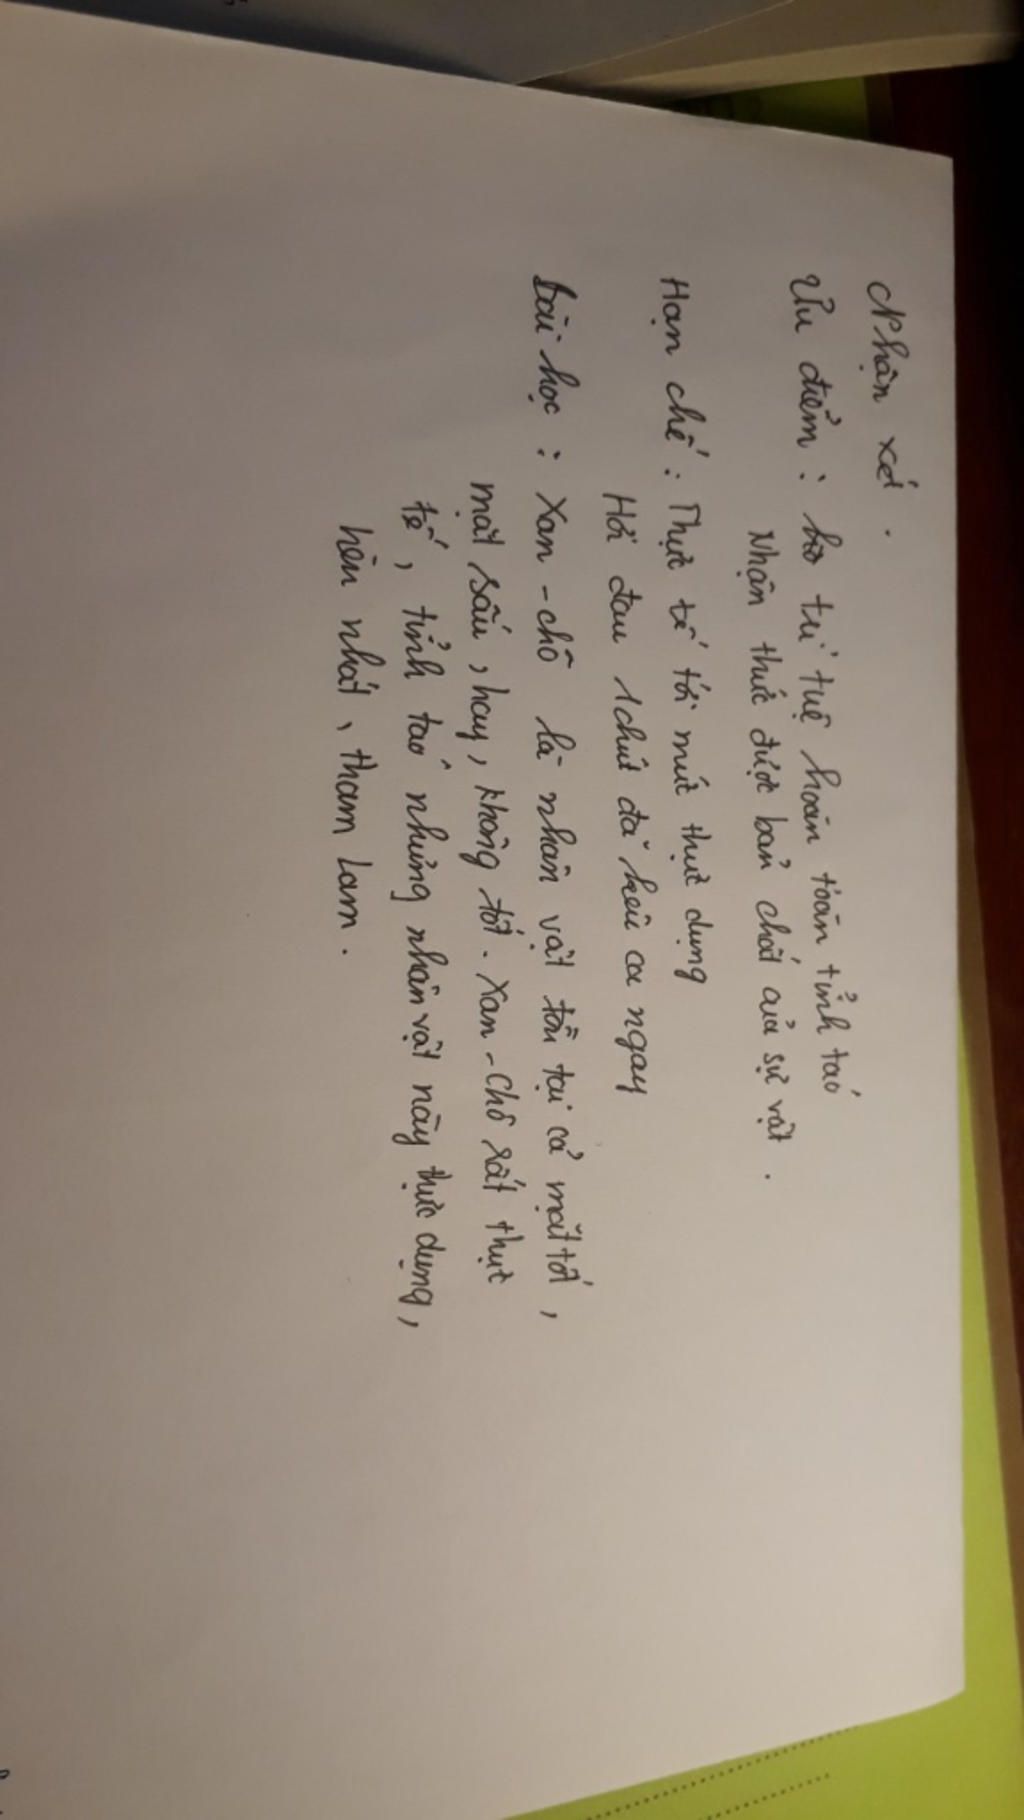 Nhận xét.
Ưu điểm: trí tuệ hoàn toàn tỉnh táo
Nhận thức được bản chất của sự vật.
Hạn chế: Thực tế tới mức thực dụng
Hơi đau 1 chút đã kêu ca ngay
bài học: Xan-chô là nhân vật tồn tại cả mặt tốt,
mặt sấu, hay, không tốt. Xan-chô rất thực
tế, tỉnh táo nhưng nhân vật này thực dụng,
hèn nhát, tham lam.